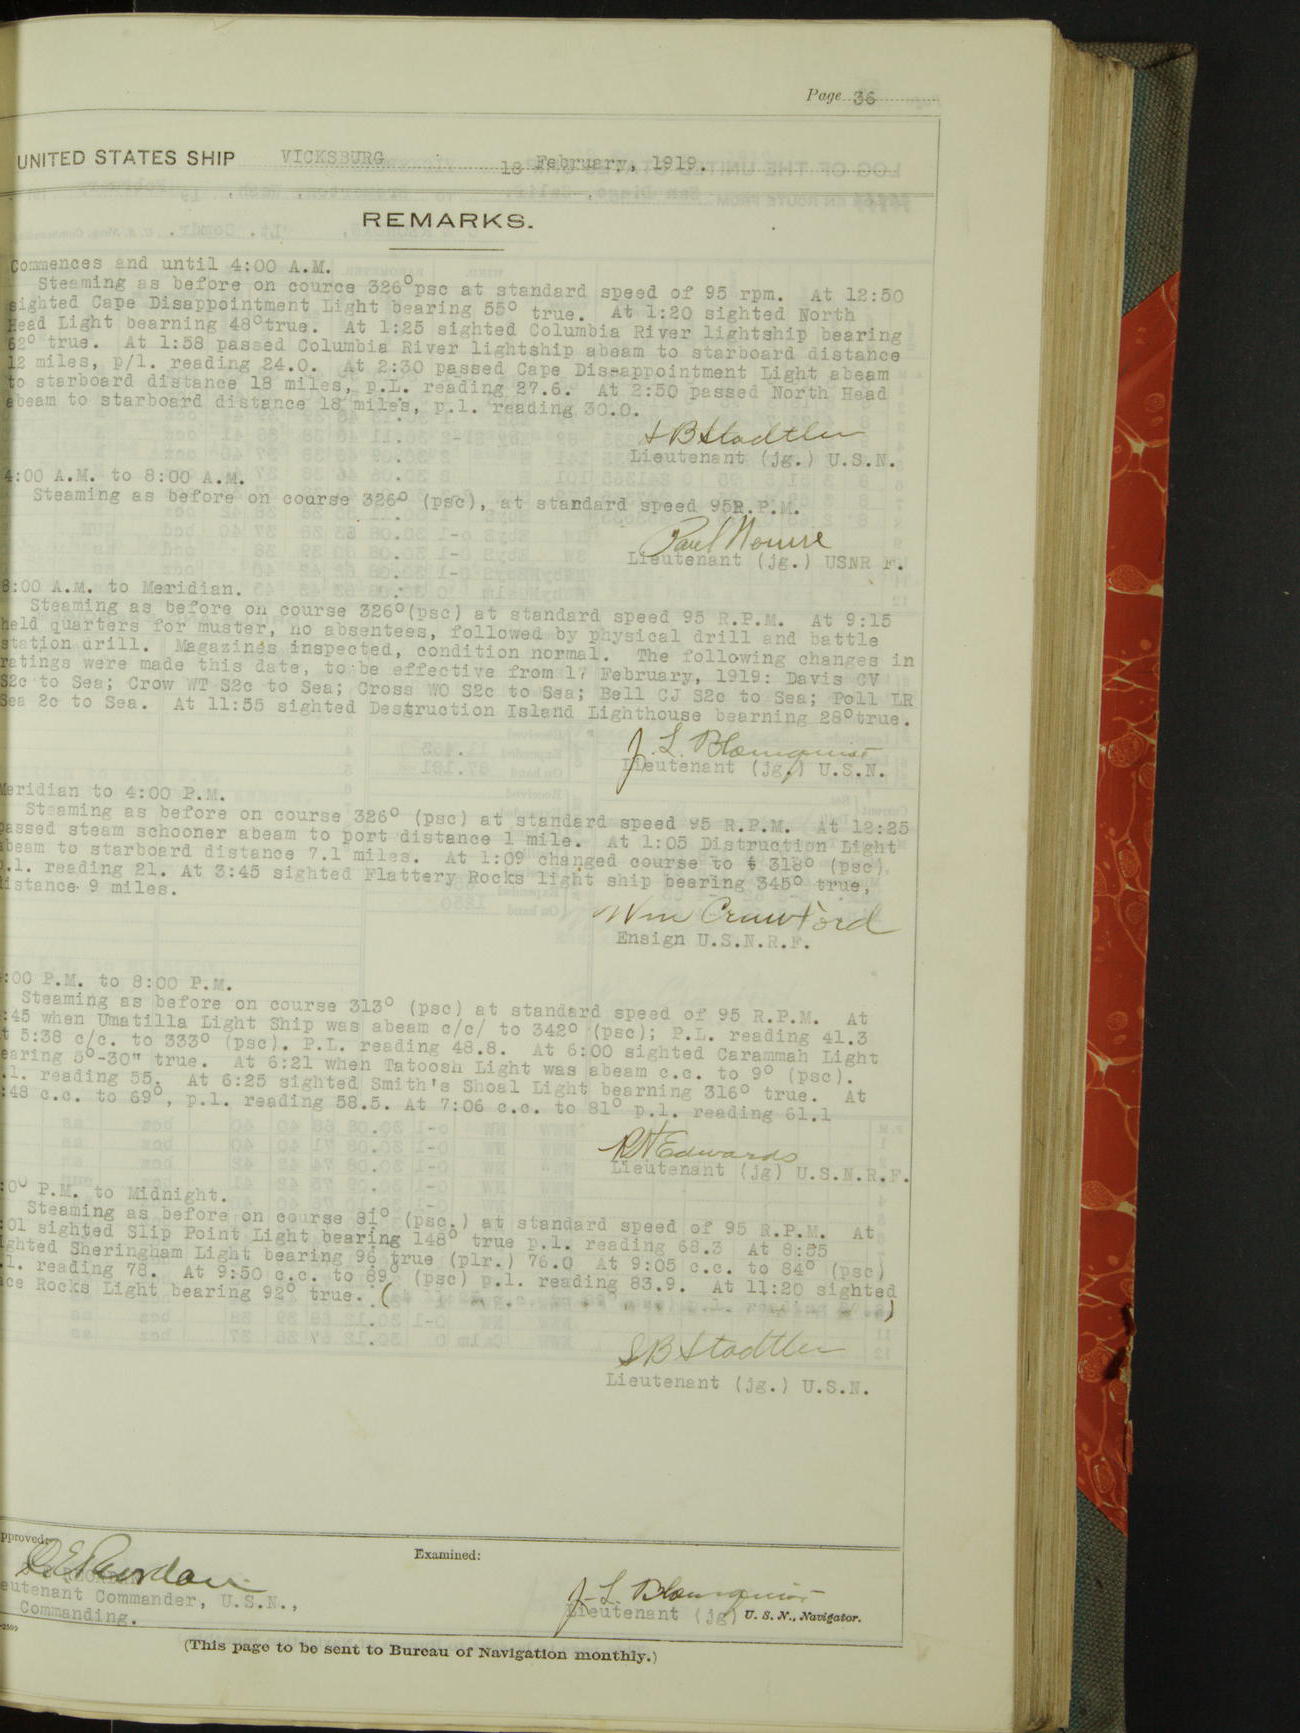 Page 36
UNITED STATES SHIP VICKSBURG 18 February, 1919.
REMARKS.
Commences and until 4:00 A.M.
Steaming as before on cource 326°psc at standard speed of 95 rpm. At 12:50
sighted Cape Disappointment Light bearing 55° true. At 1:20 sighted North
Head Light bearning 48°true. At 1:25 sighted Columbia River lightship bearing
62° true. At 1:58 passed Columbia River lightship abeam to starboard distance
12 miles, p/l. reading 24.0. At 2:30 passed Cape Dis-appointment Light abeam
to starboard distance 18 miles, p.L. reading 27.6. At 2:50 passed North Head
abeam to starboard distance 18 miles, p.l. reading 30.0.
S B Stadtler
Lieutenant (jg.) U.S.N.
4:00 A.M. to 8:00 A.M.
Steaming as before on course 326° (psc), at standard speed 95R.P.M.
Paul
Lieutenant (jg.) USNR F.
8:00 A.M. to Meridian.
Steaming as before on course 326°(psc) at standard speed 95 R.P.M. At 9:15
held quarters for muster, no absentees, followed by physical drill and battle
station drill. Magazines inspected, condition normal. The following changes in
ratings were made this date, to be effective from 17 February, 1919: Davis CV
S2c to Sea; Crow WT S2c to Sea; Cross WO S2c to Sea; Bell CJ S2c to Sea; Poll LR
Sea 2c to Sea. At 11:55 sighted Destruction Island Lighthouse bearning 28°true.
J. L. Blomquist
Lieutenant (jg.) U.S.N.
Meridian to 4:00 P.M.
Steaming as before on course 326° (psc) at standard speed 95 R.P.M. At 12:25
passed steam schooner abeam to port distance 1 mile. At 1:05 Distruction Light
abeam to starboard distance 7.1 miles. At 1:09 changed course to 318° (psc)
p.l. reading 21. At 3:45 sighted Flattery Rocks light ship bearing 345° true,
distance 9 miles.
Wm Crawford
Ensign U.S.N.R.F.
:00 P.M. to 8:00 P.M.
Steaming as before on course 313° (psc) at standard speed of 95 R.P.M. At
:45 when Umatilla Light Ship was abeam c/c/ to 342° (psc); P.L. reading 41.3
t 5:38 c/c. to 333° (psc). P.L. reading 48.8. At 6:00 sighted Carammah Light
earing 5°-30" true. At 6:21 when Tatoosh Light was abeam c.c. to 9° (psc).
.l. reading 55. At 6:25 sighted Smith's Shoal Light bearning 316° true. At
:48 c.c. to 69°, p.l. reading 58.5. At 7:06 c.c. to 81° p.l. reading 61.1
R H Edwards
Lieutenant (jg) U.S.N.R.F.
:00 P.M. to Midnight.
Steaming as before on course 81° (psc.) at standard speed of 95 R.P.M. At
:01 sighted Slip Point Light bearing 148° true p.l. reading 68.3 At 8:55
ighted Sheringham Light bearing 96 true (plr.) 76.0 At 9:05 c.c. to 84° (psc)
.l. reading 78. At 9:50 c.c. to 89° (psc) p.l. reading 83.9. At 11:20 sighted
ace Rocks Light bearing 92° true.
S B Stadtler
Lieutenant (jg.) U.S.N.
pproved:
Examined:
eutenant Commander, U.S.N.,
Commanding.
J. L. Blomquist
Lieutenant (jg) U. S. N., Navigator.
(This page to be sent to Bureau of Navigation monthly.)